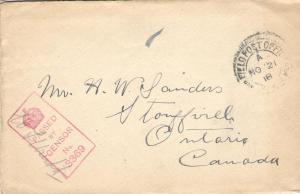 FIELD POST OFFICE
A
NO 21
18
Mr. H. W. Sanders
Stouffville
Ontario
Canada
PASSED
BY
CENSOR
No.